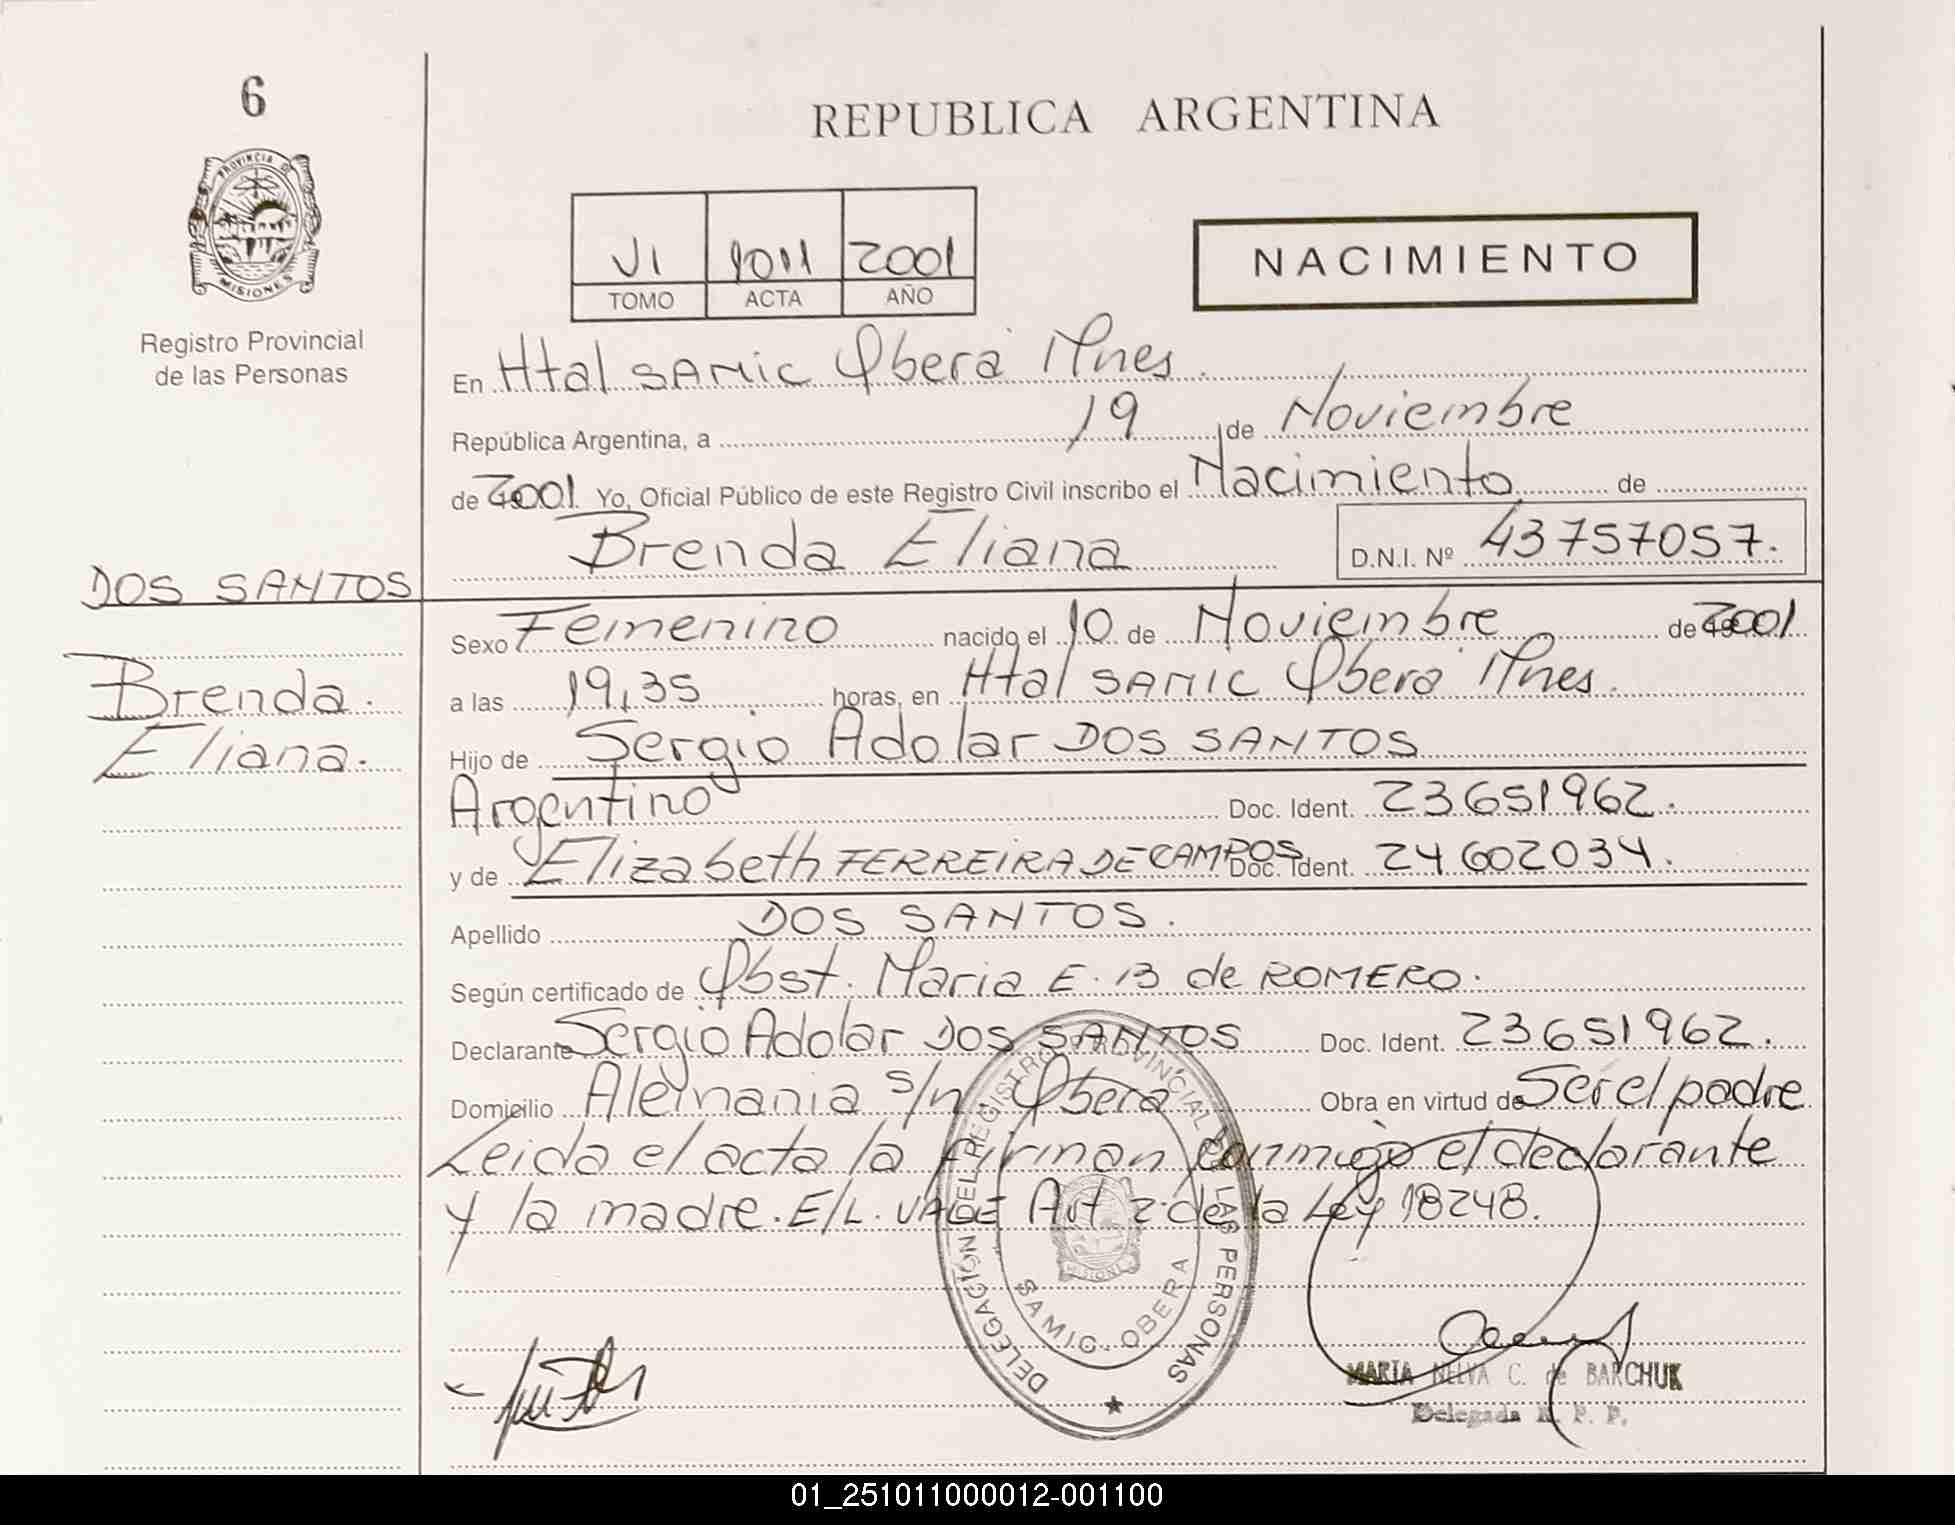 6
PROVINCIA DE
MISIONES
Registro Provincial
de las Personas
REPUBLICA ARGENTINA
VI 1011 2001
TOMO ACTA AÑO
NACIMIENTO
En Htal SAMIC Oberá Mnes.
República Argentina, a 19 de Noviembre
de 2001. Yo, Oficial Público de este Registro Civil inscribo el Nacimiento de
Brenda Eliana D.N.I. Nº 43757057.
DOS SANTOS
Brenda.
Eliana.
Sexo Femenino nacido el 10 de Noviembre de 2001
a las 19,35 horas, en Htal SAMIC Oberá Mnes.
Hijo de Sergio Adolar DOS SANTOS
Argentino Doc. Ident. 23651962.
y de Elizabeth FERREIRA DE CAMPOS Doc. Ident. 24602034.
Apellido DOS SANTOS.
Según certificado de Obst. Maria E. B de ROMERO.
Declarante Sergio Adolar DOS SANTOS Doc. Ident. 23651962.
Domicilio Alemania s/n. Oberá Obra en virtud de Ser el padre
Leida el acta la firman conmigo el declarante
y la madre. E/L. VALE Art 2 de la Ley 18248.
DELEGACIÓN DEL REGISTRO PROVINCIAL DE LAS PERSONAS
MISIONES
SAMIC - OBERA
MARIA NELVA C. de BARCHUK
Delegada R. P. P.
01_251011000012-001100